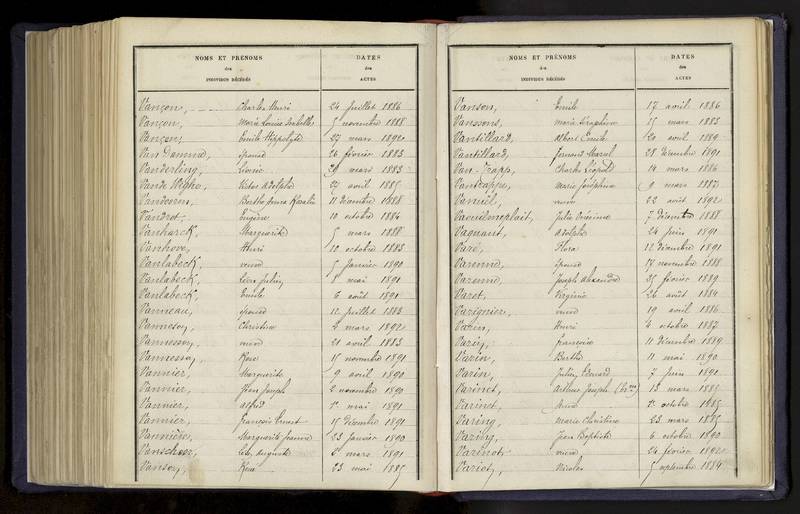 NOMS ET PRÉNOMS DATES
des des
INDIVIDUS DÉCÉDÉS ACTES
Vançon, Charles Henri 24 juillet 1886
Vançon, Marie Louise Isabelle 5 novembre 1888
Vançon, Emile Hippolyte 27 mars 1892
Van Damme, épouse 26 février 1883
Vanderling, Livine 29 mars 1883
Vande Wighe, Victor Adolphe 27 avril 1885
Vandoorn, Berthe Anna Rosalie 11 décembre 1888
Vandrot, Eugène 10 octobre 1884
Vanharck, Marguerite 5 mars 1888
Vanhove, Henri 10 octobre 1883
Vanlabeck, veuve 5 janvier 1890
Vanlabeck, Léon Julien 8 mai 1891
Vanlabeck, Emile 6 août 1891
Vanneau, épouse 12 juillet 1883
Vannesoy, Christine 2 mars 1892
Vannesson, veuve 21 avril 1883
Vannesson, Rose 15 novembre 1891
Vannier, Marguerite 9 avril 1890
Vannier, Jean Joseph 2 novembre 1890
Vannier, Alfred 1er mai 1891
Vannier, François Ernest 15 décembre 1891
Vannière, Marguerite Jeanne 23 janvier 1890
Vanscheer, Ch. Auguste 2 mars 1891
Vanson, Rose 23 mai 1885
NOMS ET PRÉNOMS DATES
des des
INDIVIDUS DÉCÉDÉS ACTES
Vanson, Emile 17 avril 1886
Vanssons, Marie Séraphine 15 mars 1883
Vantillard, Albert Emile 20 avril 1889
Vantillard, Fernand Marcel 28 décembre 1891
Van Trapp, Charles Léopold 14 mars 1886
Vantrappe, Marie Joséphine 9 mars 1887
Vanuel, veuve 22 août 1892
Julie 7 décembre 1888
Vaguant, Adolphe 24 juin 1891
Varé, Flora 12 décembre 1891
Varenne, épouse 17 novembre 1888
Varenne, Joseph Alexandre 25 février 1889
Varet, Virginie 26 août 1884
Varignier, veuve 19 avril 1886
Varin, Henri 4 octobre 1887
Varin, Françoise 11 décembre 1889
Varin, Berthe 11 mai 1890
Varin, Julien Edouard 7 juin 1890
Varinet, Arthur Joseph 13 mars 1885
Varinet, 1er octobre 1885
Varing, Marie Christine 23 mars 1885
Varing, Jean Baptiste 6 octobre 1890
Varinot, veuve 24 février 1892
Variot, Nicolas 5 septembre 1884